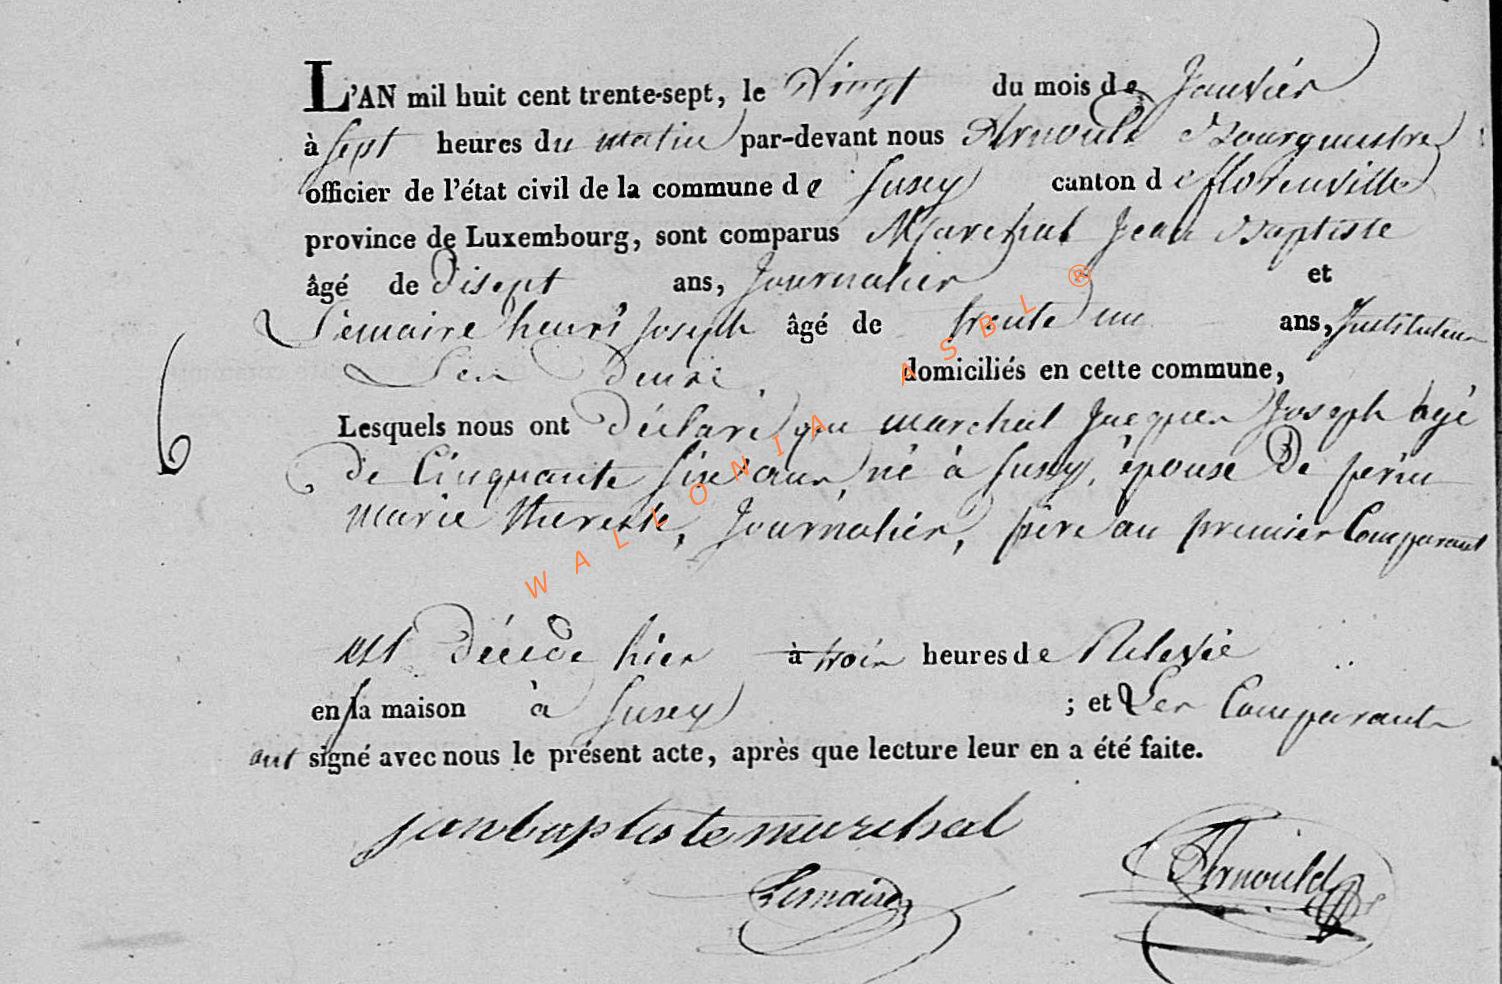 L'AN mil huit cent trente-sept, le Vingt du mois de Janvier
à sept heures du matin par-devant nous Arnould Bourgmestre
officier de l'état civil de la commune de Suxy canton de florenville
province de Luxembourg, sont comparus Marchal Jean Baptiste
âgé de disept ans, Journalier et
Lemaire henri Joseph âgé de trente un ans, Instituteur
Les deux domiciliés en cette commune,
6
Lesquels nous ont déclaré que marchal Jacques Joseph agé
de Cinquante six ans, né à Suxy, épouse de perin
marie therese, Journalier, père au premier Comparant
est décédé hier à trois heures de Relevée
en sa maison à Suxy ; et Les Comparants
ont signé avec nous le présent acte, après que lecture leur en a été faite.
jeanbaptiste marchal
Lemaire
Arnould
WALLONIA ASBL ®